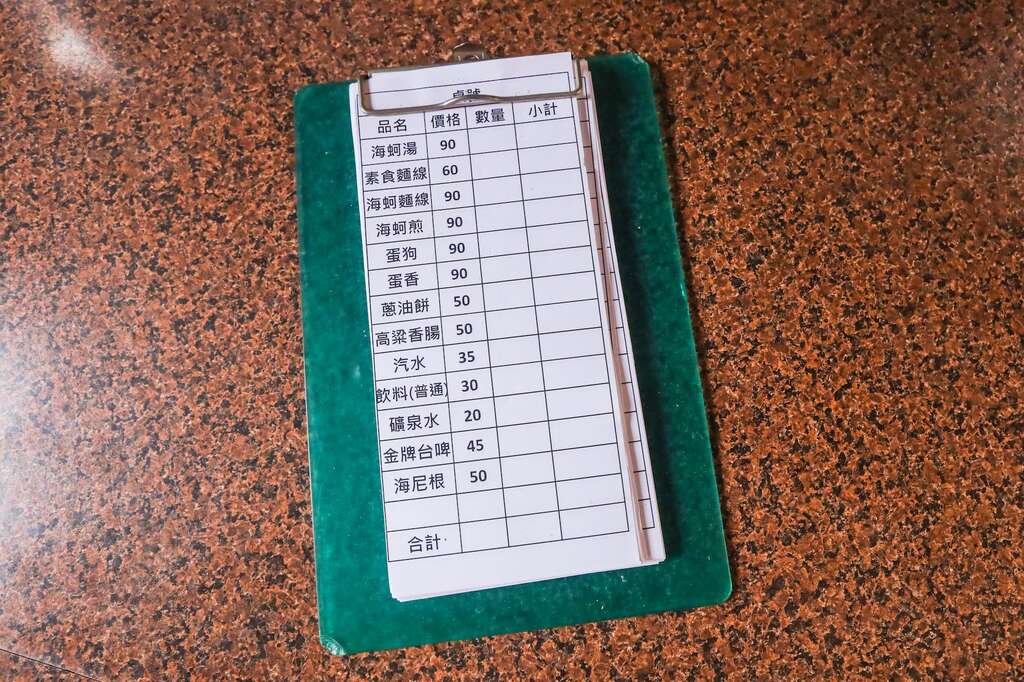 桌號
品名 價格 數量 小計
海蚵湯 90
素食麵線 60
海蚵麵線 90
海蚵煎 90
蛋狗 90
蛋香 90
蔥油餅 50
高粱香腸 50
汽水 35
飲料(普通) 30
礦泉水 20
金牌台啤 45
海尼根 50
合計